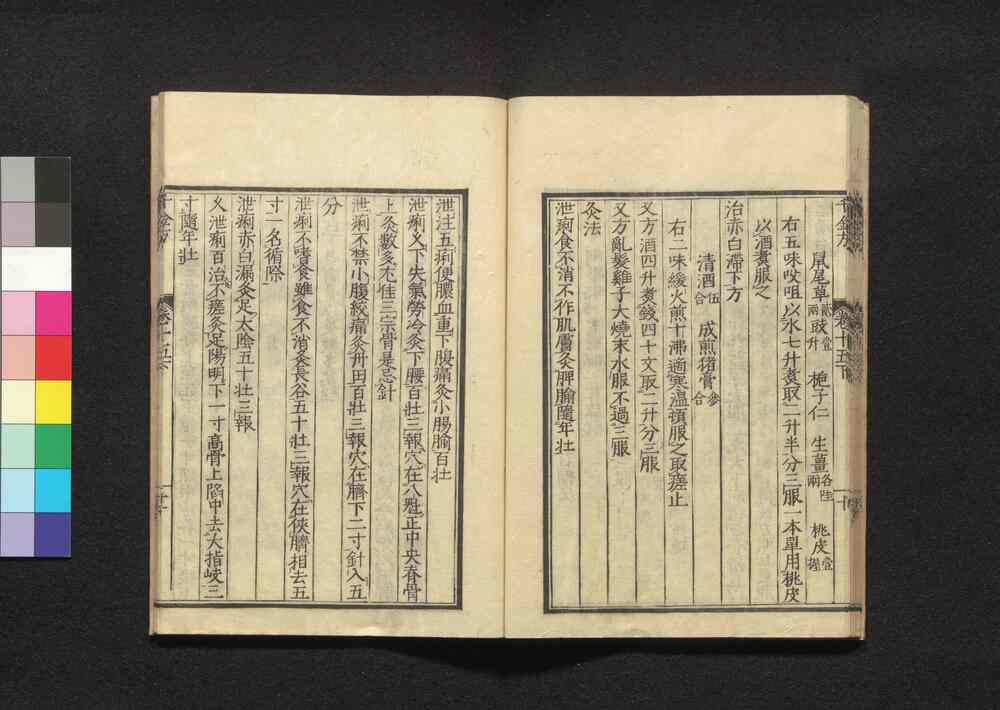 千金方 卷十五下
鼠尾草 豉 壹升 梔子仁 生薑各陸兩 桃皮壹握
右五味㕮咀以水七升煑取二升半分三服一本單用桃皮
以酒煑服之
治赤白滯下方
清酒伍合 成煎猪膏參合
右二味緩火煎十沸適寒溫頓服之取瘥止
又方酒四升煑錢四十文取二升分三服
又方亂髮雞子大燒末水服不過三服
灸法
泄痢食不消不作肌膚灸脾腧隨年壯
泄注五痢便膿血重下腹痛灸小腸腧百壯
泄痢久下失氣勞冷灸下腰百壯三報穴在八魁正中央脊骨
上灸數多尤佳三宗骨是忌針
泄痢不禁小腹絞痛灸丹田百壯三報穴在臍下二寸針入五
分
泄痢不嗜食雖食不消灸長谷五十壯三報穴在俠臍相去五
寸一名循際
泄痢赤白漏灸足太陰五十壯三報
久泄痢百治不瘥灸足陽明下一寸高骨上陷中去大指岐三
寸隨年壯